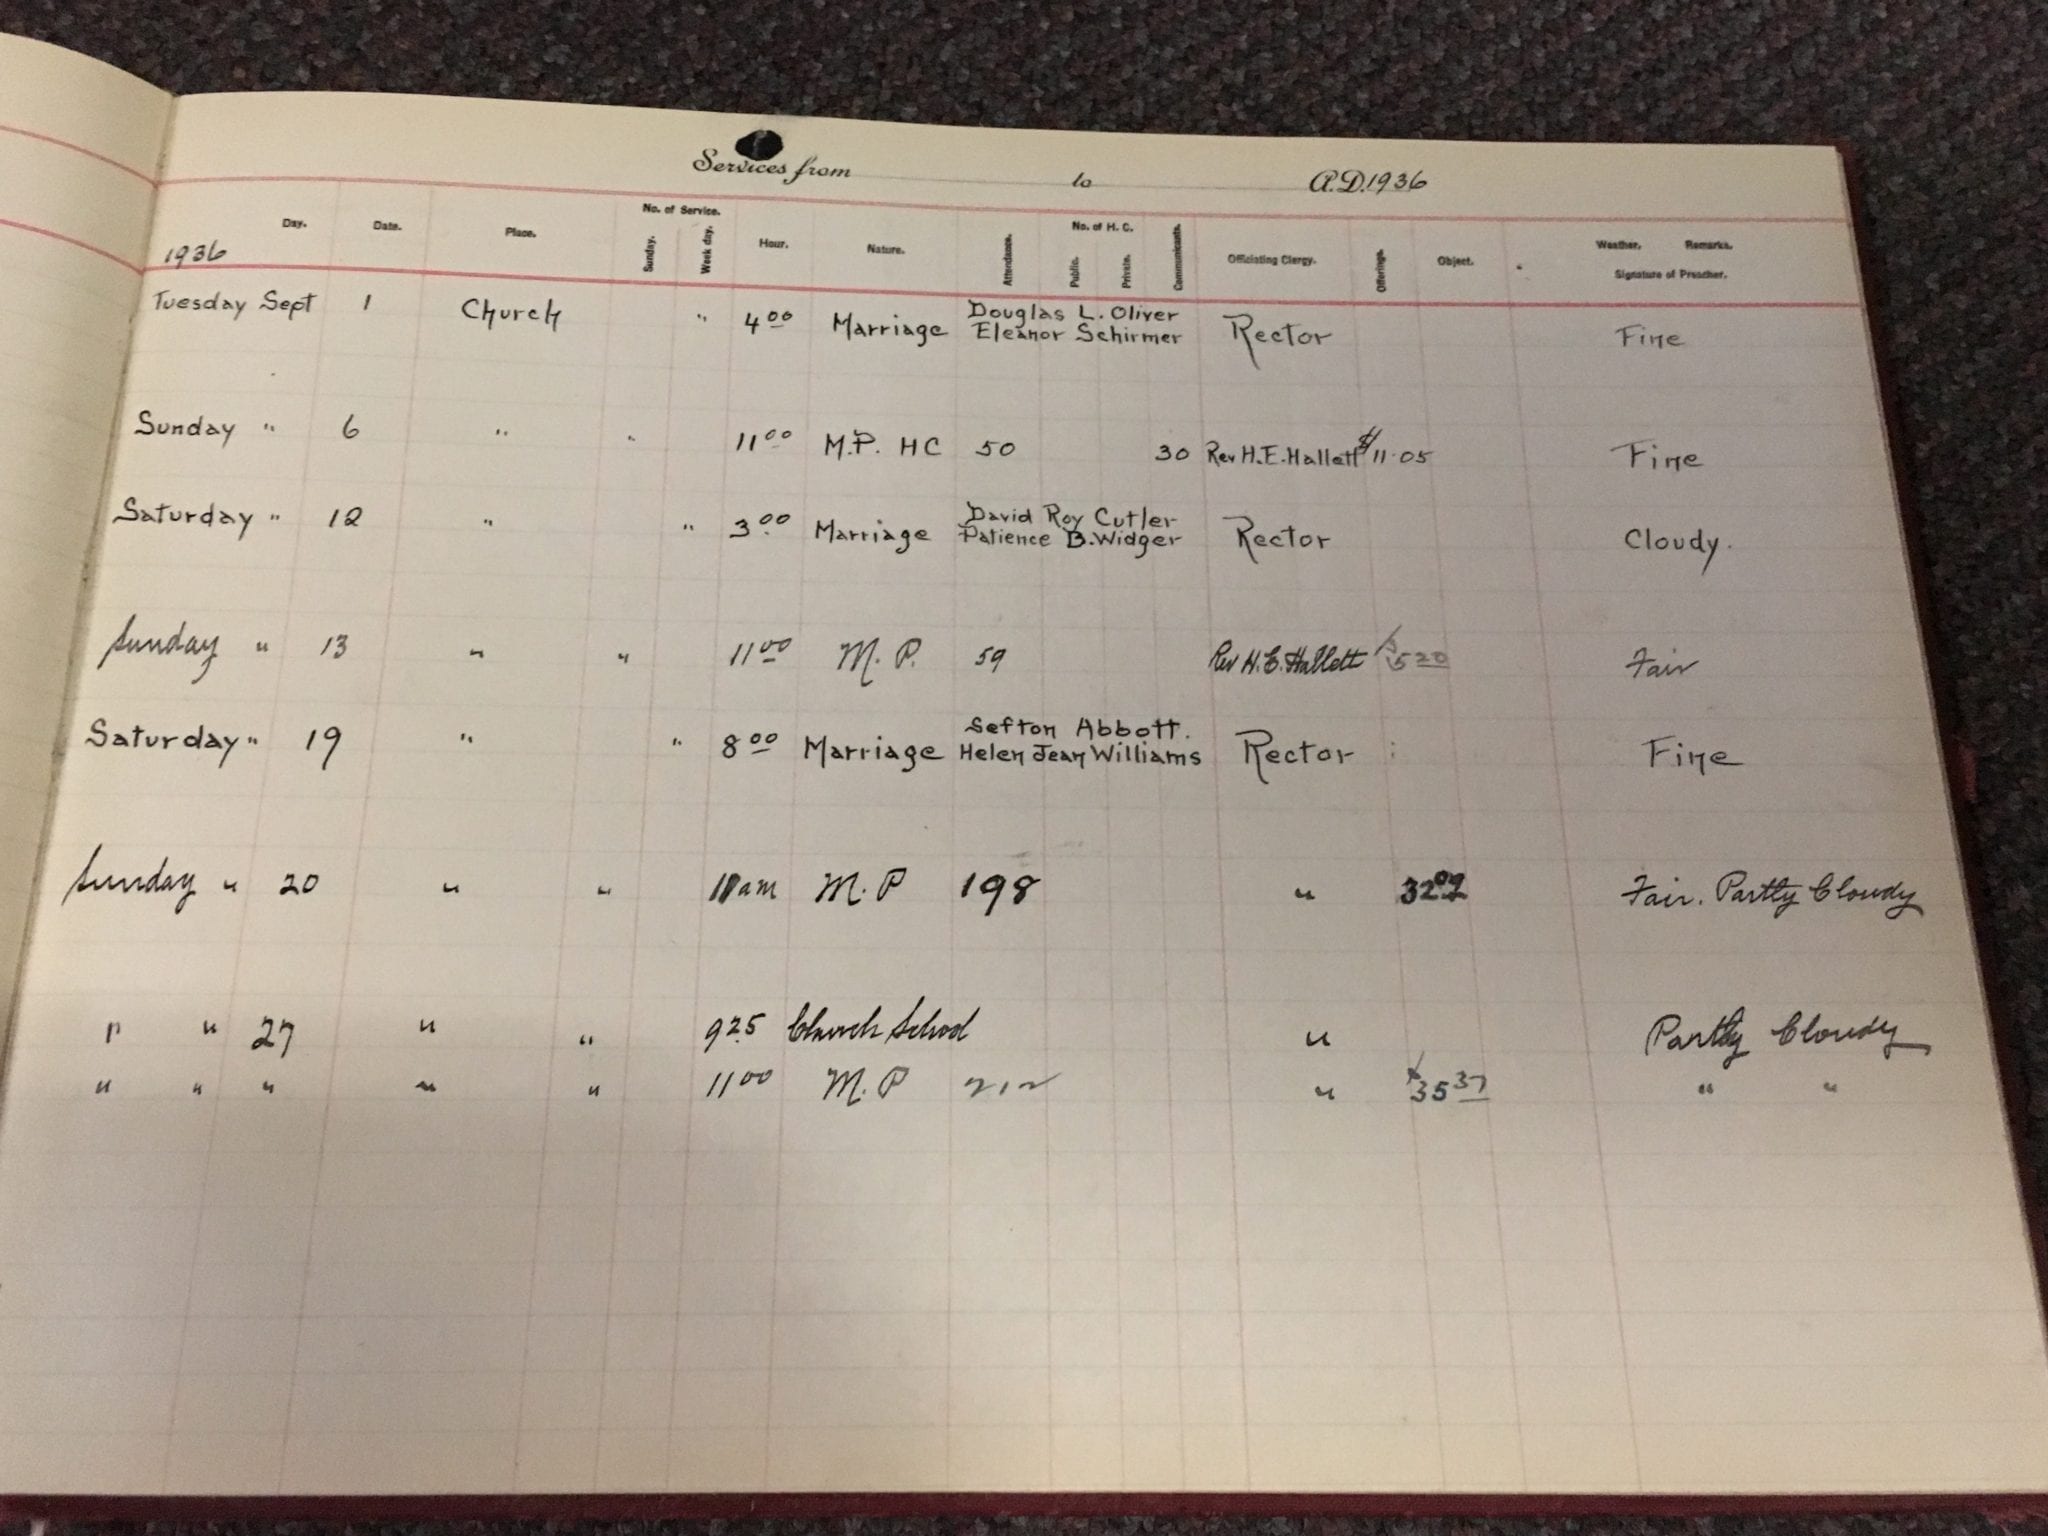 Services from to A.D. 1936
Day. Date. Place. No. of Service. Sunday. Week day. Hour. Nature. Attendance. No. of H. C. Public. Private. Communicants. Officiating Clergy. Offerings. Object. Weather, Remarks. Signature of Preacher.
1936
Tuesday Sept 1 Church " 4 00 Marriage Douglas L. Oliver Rector Fine
Eleanor Schirmer
Sunday " 6 " " 11 00 M.P. HC 50 30 Rev H.E. Hallett $11.05 Fine
Saturday " 12 " " 3 00 Marriage David Roy Cutler Rector Cloudy.
Patience B. Widger
Sunday " 13 " " 11 00 M. P. 59 Rev H. E. Hallett Fair
Saturday " 19 " " 8 00 Marriage Sefton Abbott. Rector Fine
Helen Jean Williams
Sunday " 20 " " 11 am M. P 198 " Fair. Partly Cloudy
" " 27 " " 9 25 Church School " Partly Cloudy
" " " " " 11 00 M. P 212 " $35 37 " "